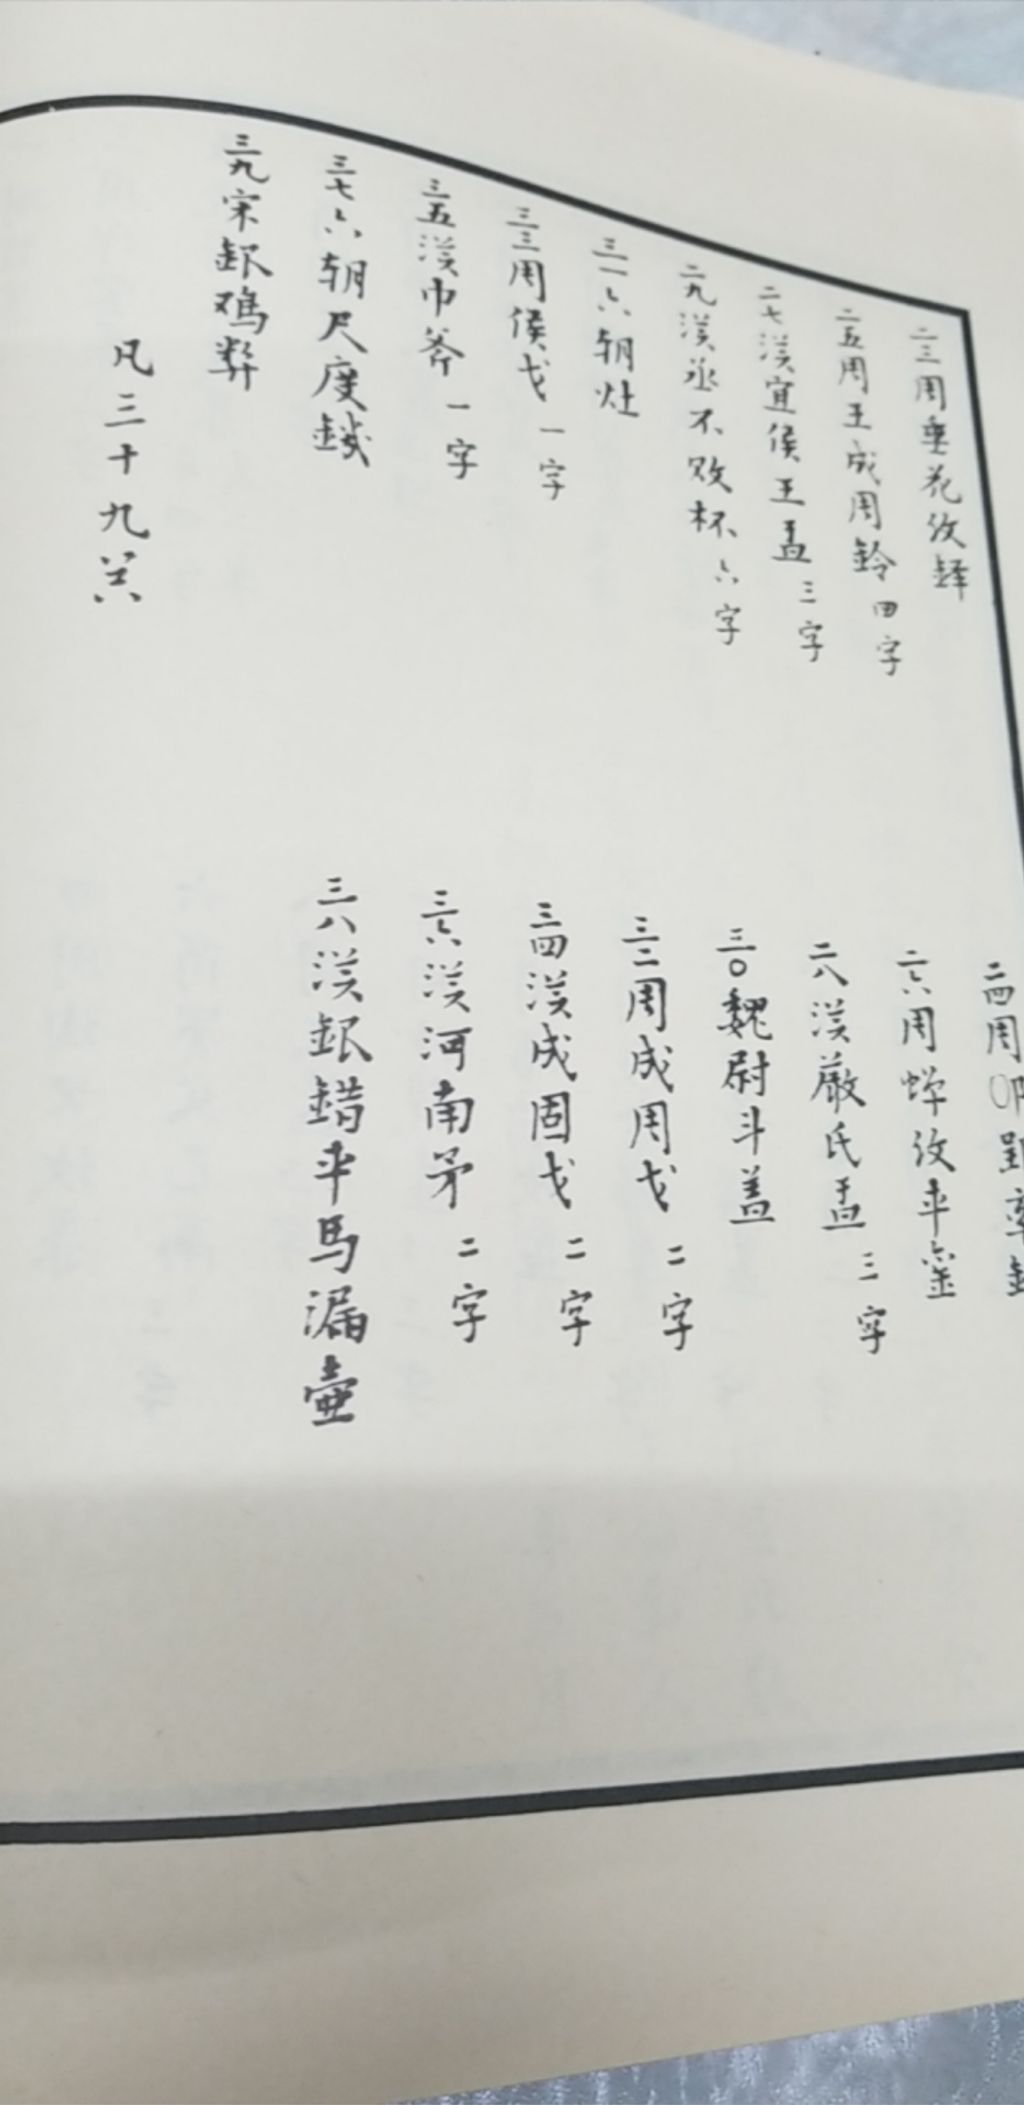 二三周垂花纹鐸
二四周
二五周王成周鈴 四字
二六周蟬纹车銮
二七漢宜侯王盂 三字
二八漢嚴氏盂 三字
二九漢丞不败杯 六字
三〇魏尉斗盖
三一六朝灶
三二周成周戈 二字
三三周侯戈 一字
三四漢成固戈 二字
三五漢巾斧 一字
三六漢河南矛 二字
三七六朝尺度鉞
三八漢銀錯车馬漏壷
三九宋銀鸡
凡三十九